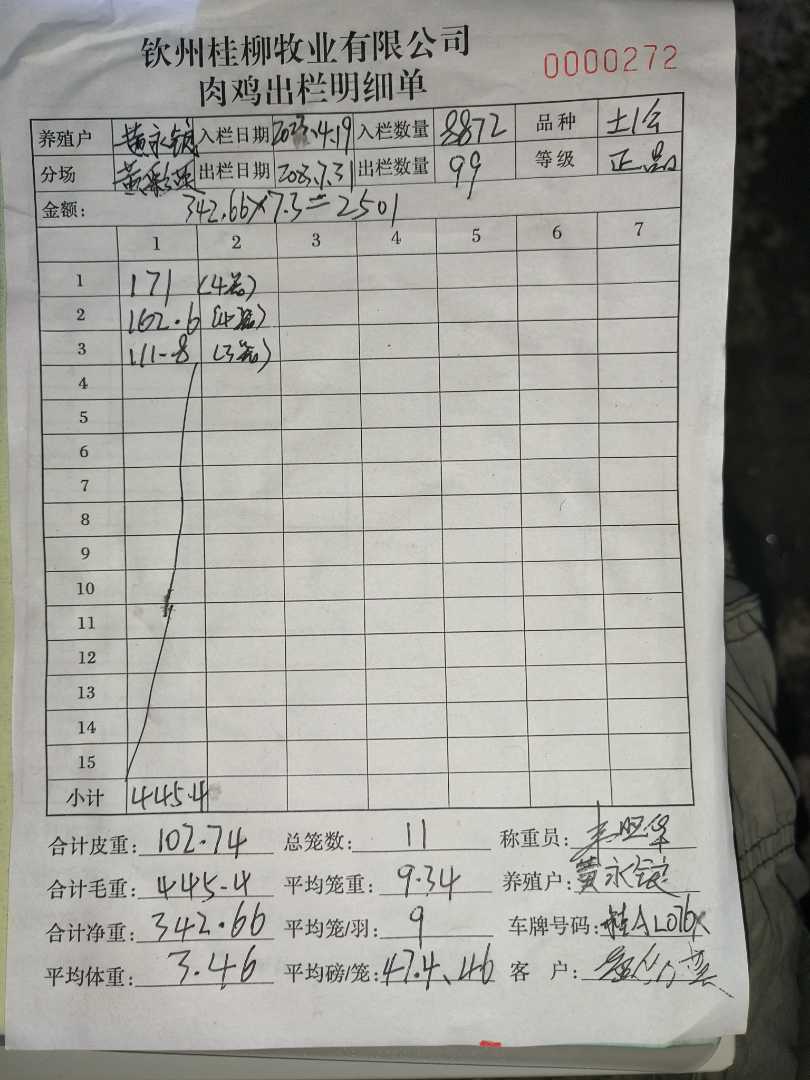 钦州桂柳牧业有限公司
肉鸡出栏明细单
0000272
养殖户 黄永锬 入栏日期 2023.4.19 入栏数量 8872 品种
分场 黄彩英 出栏日期 2023.7.31 出栏数量 99 等级 正品
金额: 342.66×7.3=2501
1 2 3 4 5 6 7
1 171 (4笼)
2 162.6 (4笼)
3 111.8 (3笼)
4
5
6
7
8
9
10
11
12
13
14
15
小计 445.4
合计皮重: 102.74 总笼数: 11 称重员:
合计毛重: 445.4 平均笼重: 9.34 养殖户:
合计净重: 342.66 平均笼/羽: 9 车牌号码:
平均体重: 3.46 平均磅/笼: 47.4、46 客 户: